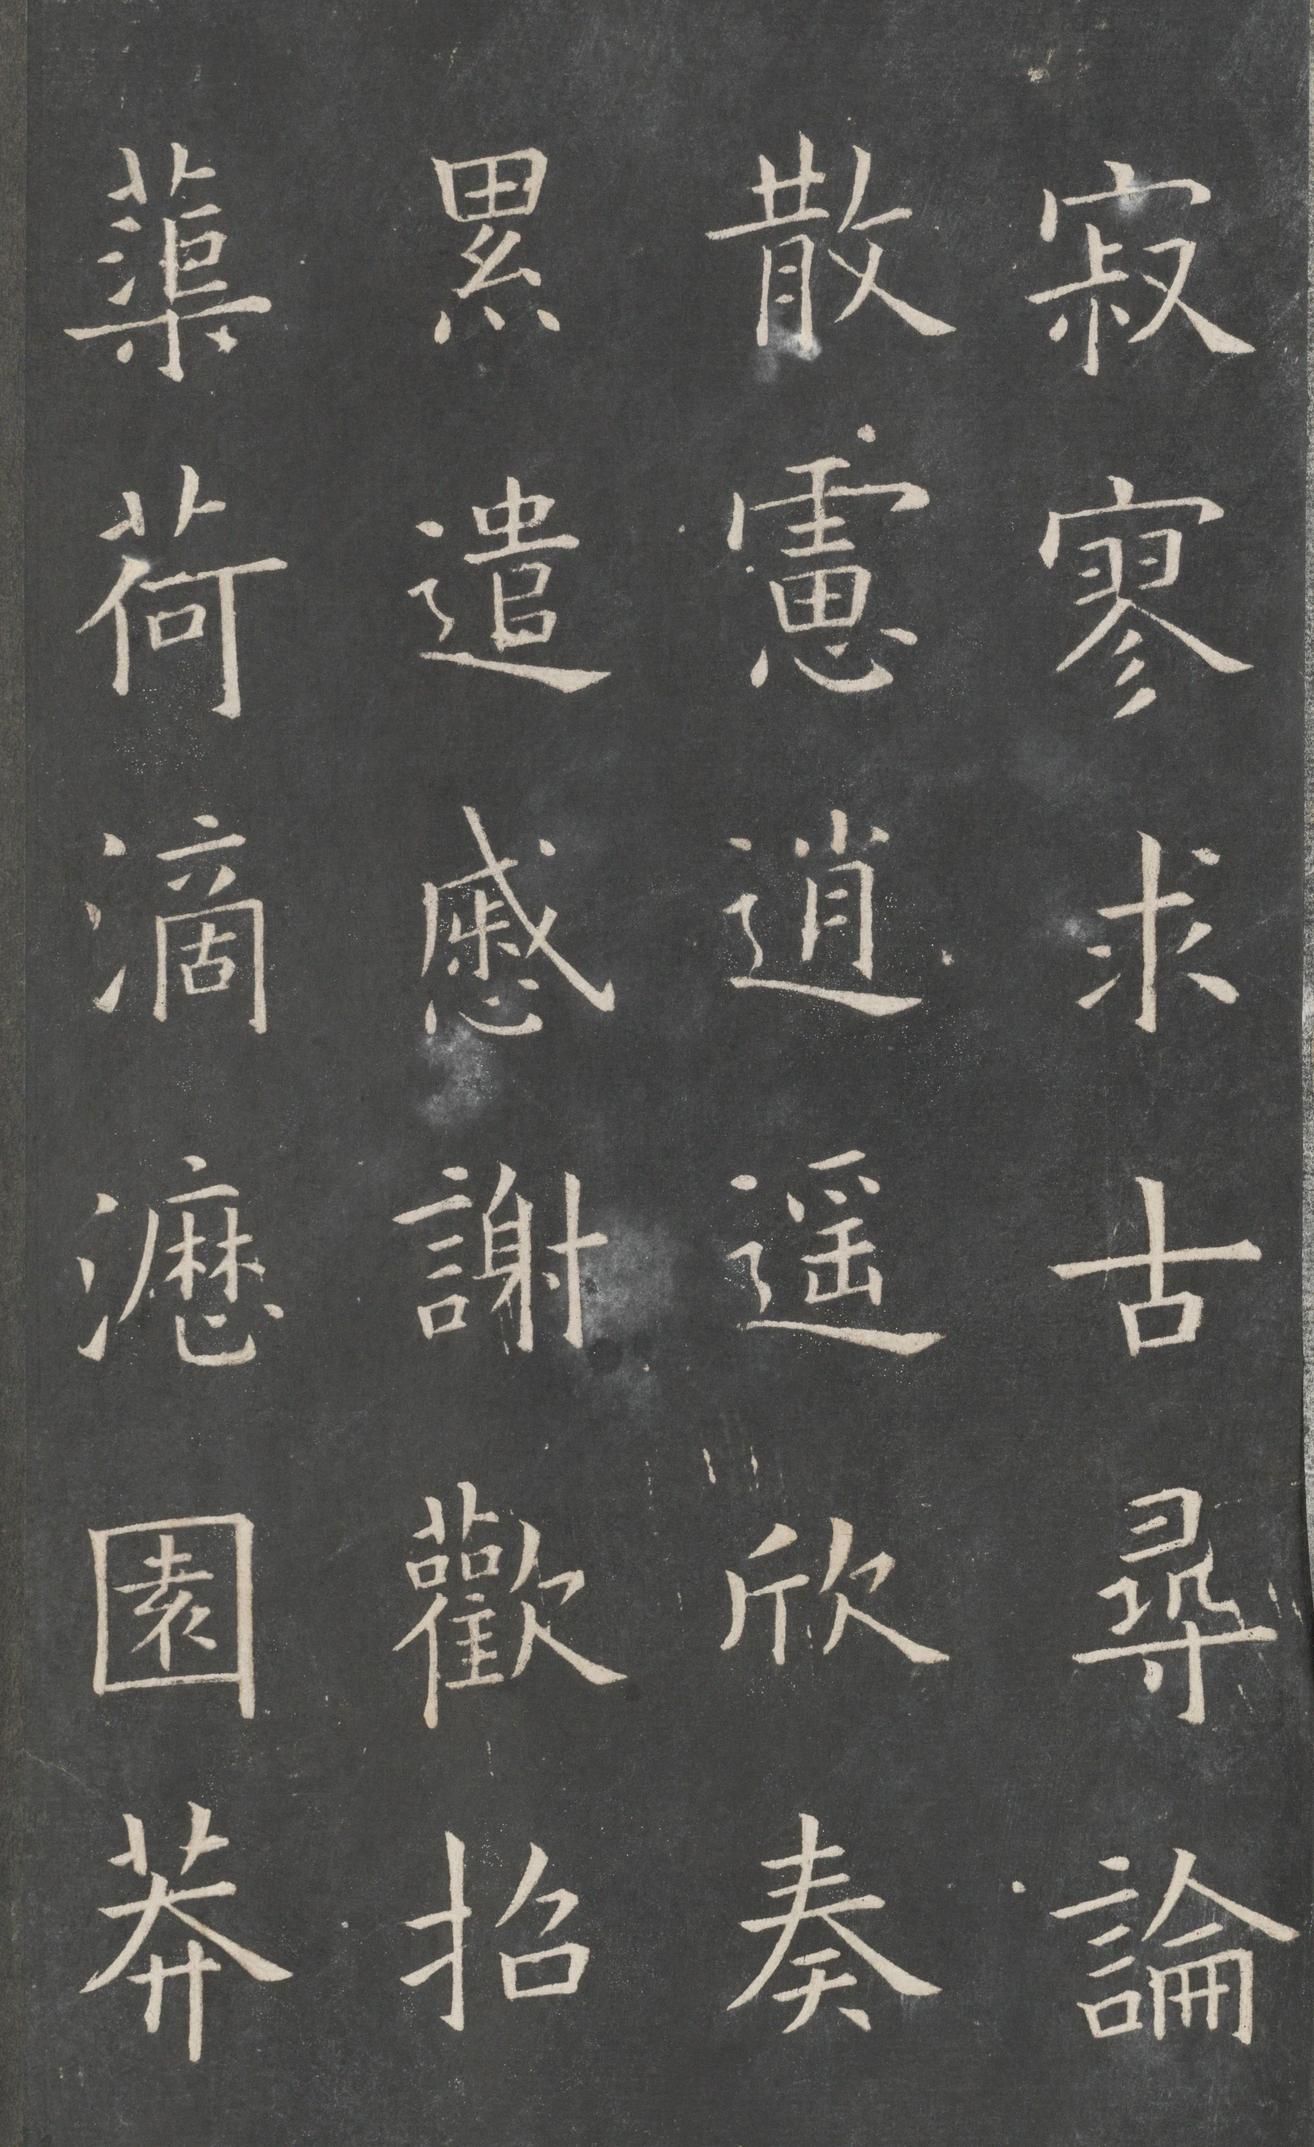 寂寥求古尋論
散慮逍遥欣奏
累遣慼謝歡招
蕖荷滴瀝園莽